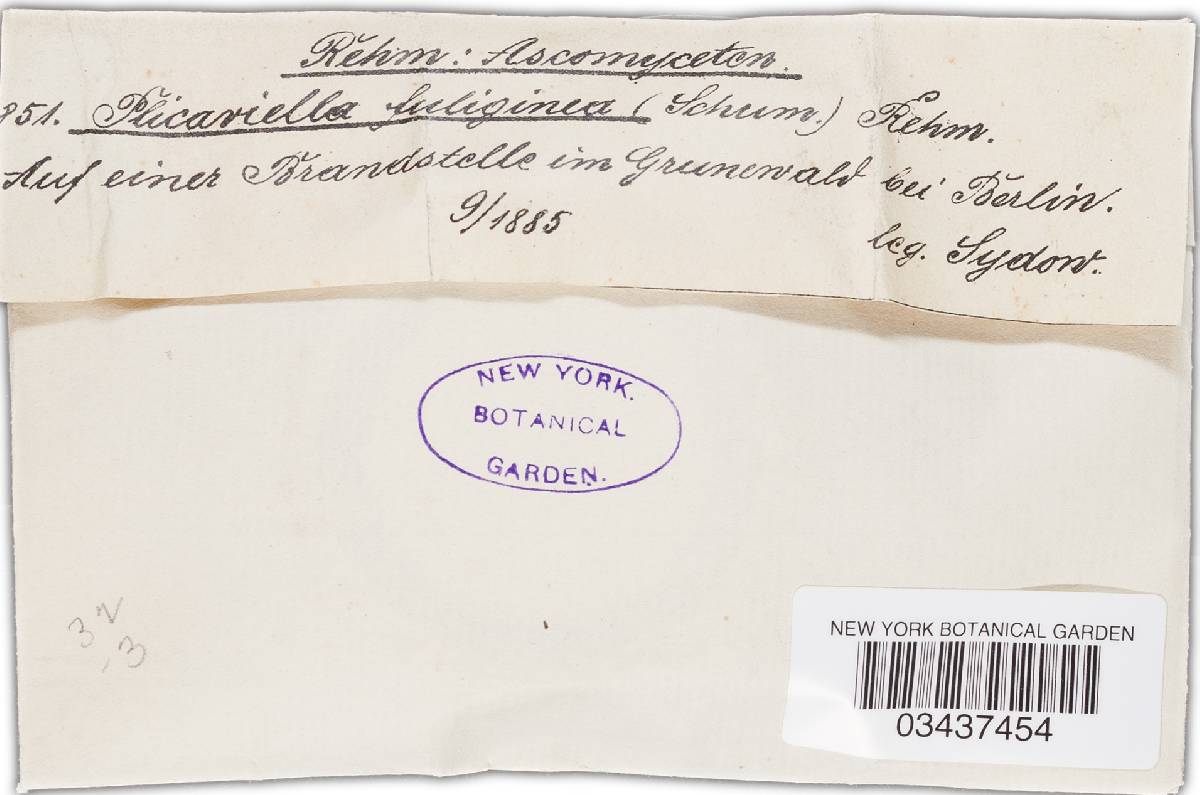 Rehm: Ascomyceten.
851. Plicariella fuliginea (Schum.) Rehm.
Auf einer Brandstelle im Grunewald bei Berlin.
9/1885
leg. Sydow.
NEW YORK.
BOTANICAL
GARDEN.
32
,3
NEW YORK BOTANICAL GARDEN
03437454